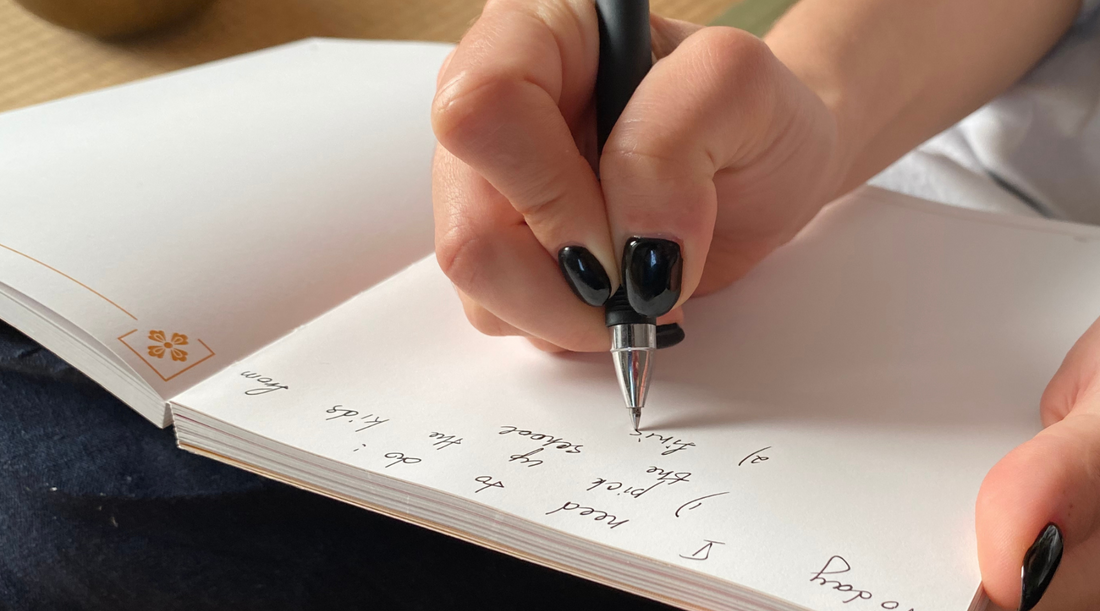 Today I need to do:
1) pick up the kids from
the school
2) finis